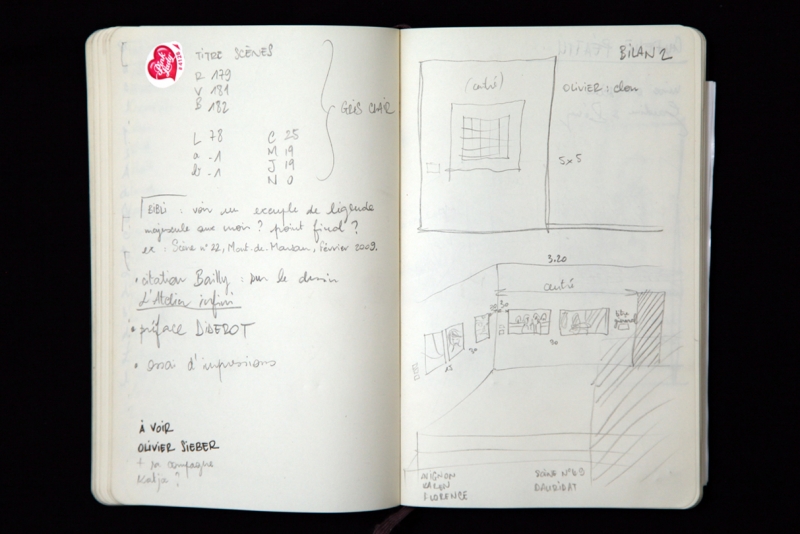 Pink Lady
TITRE SCÈNES
R 179
V 181
B 182
GRIS CLAIR
L 78
a -1
b -1
C 25
M 19
J 19
N 0
BIBLI : voir un exemple de légende
majuscule ou non ? point final ?
ex : Scène n° 22, Mont-de-Marsan, février 2009.
• citation Bailly : sur le dessin
L'Atelier infini
• préface DIDEROT
• essai d'impressions
À VOIR
OLIVIER SIEBER
+ sa compagne
Katja ?
BILAN 2
(centré)
OLIVIER : clou
5x5
3.20
centré
20 30
90
AVIGNON
FLORENCE
SCÈNE N° 49